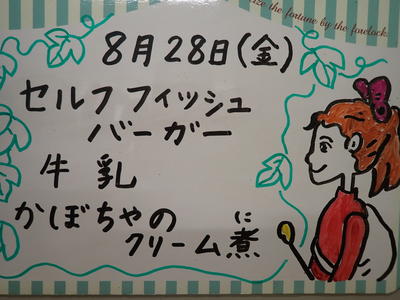 ize the fortune by the forelock.
8月28日(金)
セルフフィッシュ
バーガー
牛乳
かぼちゃの
クリーム煮
に